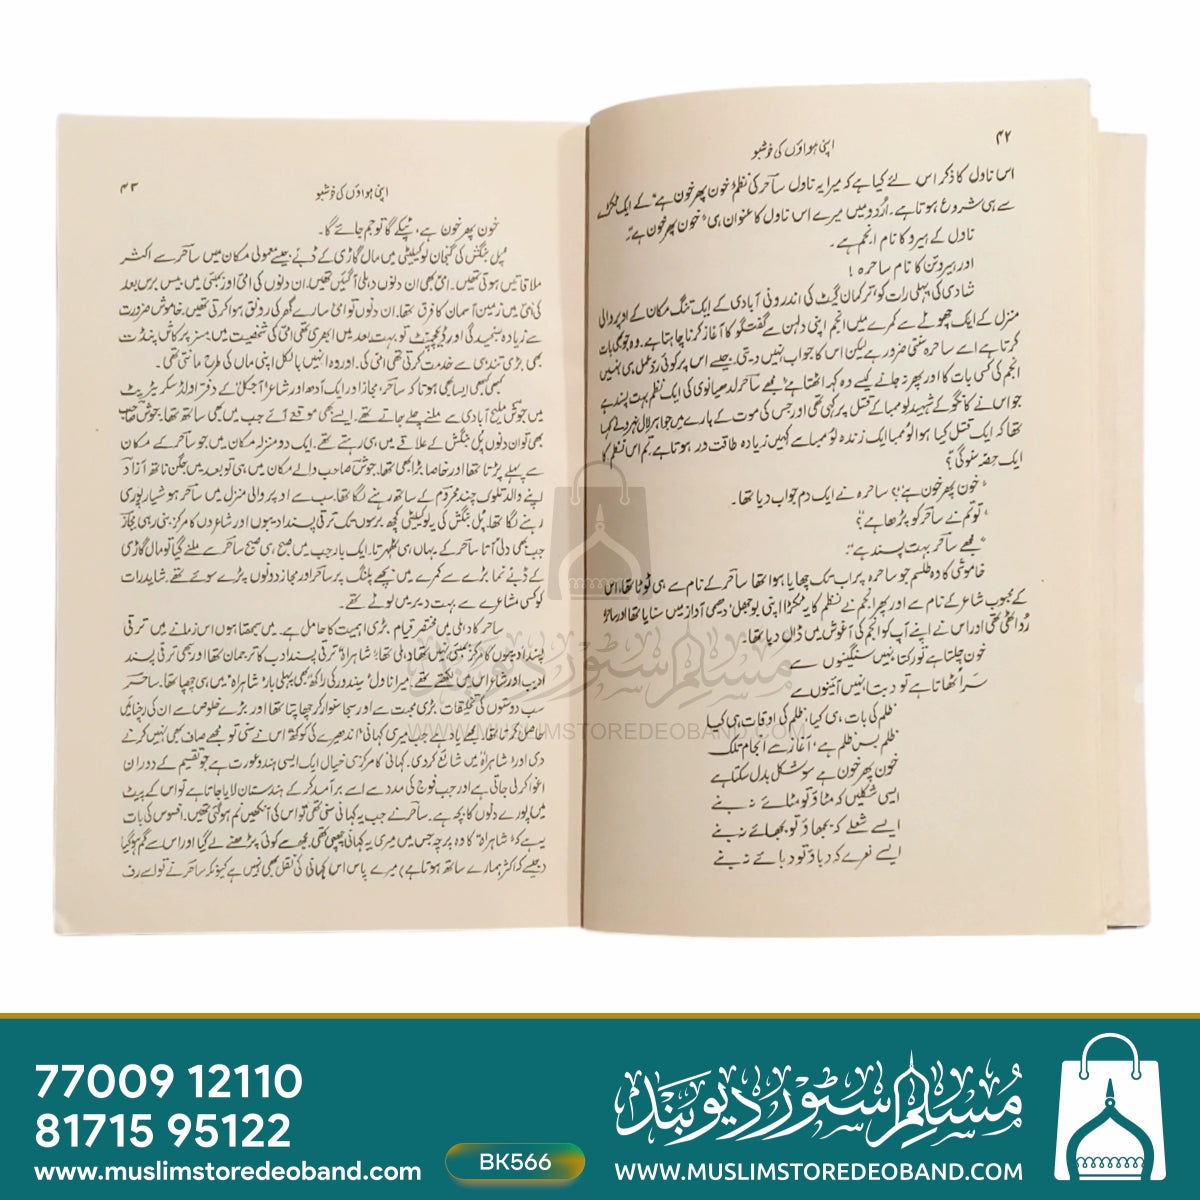 ۴۲
اپنی ہواؤں کی خوشبو
اس ناول کا ذکر اس لئے کیا ہے کہ میرا یہ ناول ساحر کی نظم ’خون پھر خون ہے‘ کے ایک ٹکڑے
سے ہی شروع ہوتا ہے۔ اُردو میں میرے اس ناول کا عنوان ہی ’خون پھر خون ہے‘۔
ناول کے ہیرو کا نام انجم ہے۔
اور ہیروئن کا نام ساحرہ!
شادی کی پہلی رات کو ترکمان گیٹ کی اندرونی آبادی کے ایک تنگ مکان کے اوپر والی
منزل کے ایک چھوٹے سے کمرے میں انجم اپنی دلہن سے گفتگو کا آغاز کرنا چاہتا ہے۔ وہ جو بھی بات
کرتا ہے اسے ساحرہ سنتی ضرور ہے لیکن اس کا جواب نہیں دیتی۔ جیسے اس پر کوئی ردّعمل ہی نہیں
انجم کی کسی بات کا اور پھر نہ جانے کیسے وہ کہہ اٹھتا ہے ’مجھے ساحر لدھیانوی کی ایک نظم بہت پسند ہے
جو اس نے کانگو کے شہید لوممبا کے قتل پر کہی تھی اور جس کی موت کے بارے میں جواہر لال نہرو نے کہا
تھا کہ ایک قتل کیا ہوا لوممبا ایک زندہ لوممبا سے کہیں زیادہ طاقت ور ہوتا ہے۔ تم اس نظم کا
ایک حصّہ سنو گی؟
’خون پھر خون ہے‘؟ ساحرہ نے ایک دم جواب دیا تھا۔
’تو تم نے ساحر کو پڑھا ہے؟‘
’مجھے ساحر بہت پسند ہے‘۔
خاموشی کا وہ طلسم جو ساحرہ پر اب تک چھایا ہوا تھا ساحر کے نام سے ہی ٹوٹا تھا، اس
کے محبوب شاعر کے نام سے اور پھر انجم نے نظم کا یہ ٹکڑا اپنی بوجھل، دھیمی آواز میں سنایا تھا اور ساحرہ
رو اٹھی تھی اور اس نے اپنے آپ کو انجم کی آغوش میں ڈال دیا تھا۔
خون چلتا ہے تو رکتا نہیں سنگینوں سے
سر اٹھاتا ہے تو دبتا نہیں آئینوں سے
ظلم کی بات ہی کیا، ظلم کی اوقات ہی کیا
ظلم بس ظلم ہے، آغاز سے انجام تلک
خون پھر خون ہے سو شکل بدل سکتا ہے
ایسی شکلیں کہ مٹاؤ تو مٹائے نہ بنے
ایسے شعلے کہ بجھاؤ تو بجھائے نہ بنے
ایسے نعرے کہ دباؤ تو دبائے نہ بنے
۴۳
اپنی ہواؤں کی خوشبو
خون پھر خون ہے، ٹپکے گا تو جم جائے گا۔
پُل بنگش کی گنجان لوکیلیٹی میں مال گاڑی کے ڈبّے جیسے معمولی مکان میں ساحر سے اکثر
ملاقاتیں ہوتی تھیں۔ امّی بھی ان دنوں دہلی آگئیں تھیں۔ ان دنوں کی امّی اور بمبئی میں بیس برس بعد
کی امّی میں زمین آسمان کا فرق تھا۔ ان دنوں تو امّی سارے گھر کی رونق ہوا کرتی تھیں۔ خاموش ضرورت
سے زیادہ سنجیدگی اور ڈیٹیچمنٹ تو بہت بعد میں ابھری تھی امّی کی شخصیت میں۔ مسز پرکاش پنڈت
بھی بڑی تندہی سے خدمت کرتی تھی امّی کی۔ اور وہ انہیں بالکل اپنی ماں کی طرح مانتی تھی۔
کبھی کبھی ایسا بھی ہوتا کہ ساحر، مجاز اور ایک آدھ اور شاعر ’آجکل‘ کے دفتر اولڈ سکریٹریٹ
میں جوش ملیح آبادی سے ملنے چلے جاتے تھے۔ ایسے بھی موقعے آئے جب میں بھی ساتھ تھا۔ جوش صاحب
بھی تو ان دنوں پُل بنگش کے علاقے میں ہی رہتے تھے۔ ایک دو منزلہ مکان میں جو ساحر کے مکان
سے پہلے پڑتا تھا اور خاصا بڑا بھی تھا۔ جوش صاحب والے مکان میں ہی تو بعد میں جگن ناتھ آزاد
اپنے والد تلوک چند محروم کے ساتھ رہنے لگا تھا۔ سب سے اوپر والی منزل میں ساحر ہوشیارپوری
رہنے لگا تھا۔ پُل بنگش کی یہ لوکیلیٹی کچھ برسوں تک ترقی پسند ادیبوں اور شاعروں کا مرکز بنی رہی۔ مجاز
جب بھی دلّی آتا ساحر کے یہاں ہی ٹھہرتا۔ ایک بار جب میں صبح ہی صبح ساحر سے ملنے گیا تو مال گاڑی
کے ڈبے نما بڑے سے کمرے میں بچھے پلنگ پر ساحر اور مجاز دونوں پڑے سوئے تھے۔ شاید رات
کو کسی مشاعرے سے بہت دیر میں لوٹے تھے۔
ساحر کا دہلی میں مختصر قیام بڑی اہمیت کا حامل ہے۔ میں سمجھتا ہوں اس زمانے میں ترقی
پسند ادیبوں کا مرکز بمبئی نہیں تھا دہلی تھا؛ ’شاہراہ‘ ترقی پسند ادب کا ترجمان تھا اور سبھی ترقی پسند
ادیب اور شاعر اس میں لکھتے تھے۔ میرا ناول ’سیندور کی راکھ‘ بھی پہلی بار ’شاہراہ‘ میں ہی چھپا تھا۔ ساحر
سب دوستوں کی تخلیقات بڑی محبت سے اور سجا سنوار کر چھاپتا تھا اور بڑے خلوص سے ان کی رچنائیں
حاصل کرتا تھا۔ مجھے یاد ہے جب میری کہانی ’اندھیرے کی کوکھ‘ اس نے سنی تو مجھے صاف بھی نہیں کرنے
دی اور ’شاہراہ‘ میں شائع کر دی۔ کہانی کا مرکزی خیال ایک ایسی ہندو عورت ہے جو تقسیم کے دوران
اغوا کر لی جاتی ہے اور جب فوج کی مدد سے اسے برآمد کر کے ہندستان لایا جاتا ہے تو اس کے پیٹ
میں پورے دنوں کا بچہ ہے۔ ساحر نے جب یہ کہانی سنی تھی تو اس کی آنکھیں نم ہو گئی تھیں۔ افسوس کی بات
یہ ہے کہ ’شاہراہ‘ کا وہ پرچہ جس میں میری یہ کہانی چھپی تھی۔ مجھ سے کوئی پڑھنے لے گیا اور اس سے گم ہو گیا
(جیسے کہ اکثر ہمارے ساتھ ہوتا ہے) میرے پاس اس کہانی کی نقل بھی نہیں ہے کیونکہ ساحر نے تو اسے رف
مسلم سٹور دیوبند
WWW.MUSLIMSTOREDEOBAND.COM
77009 12110
81715 95122
www.muslimstoredeoband.com
BK566
مسلم سٹور دیوبند
WWW.MUSLIMSTOREDEOBAND.COM